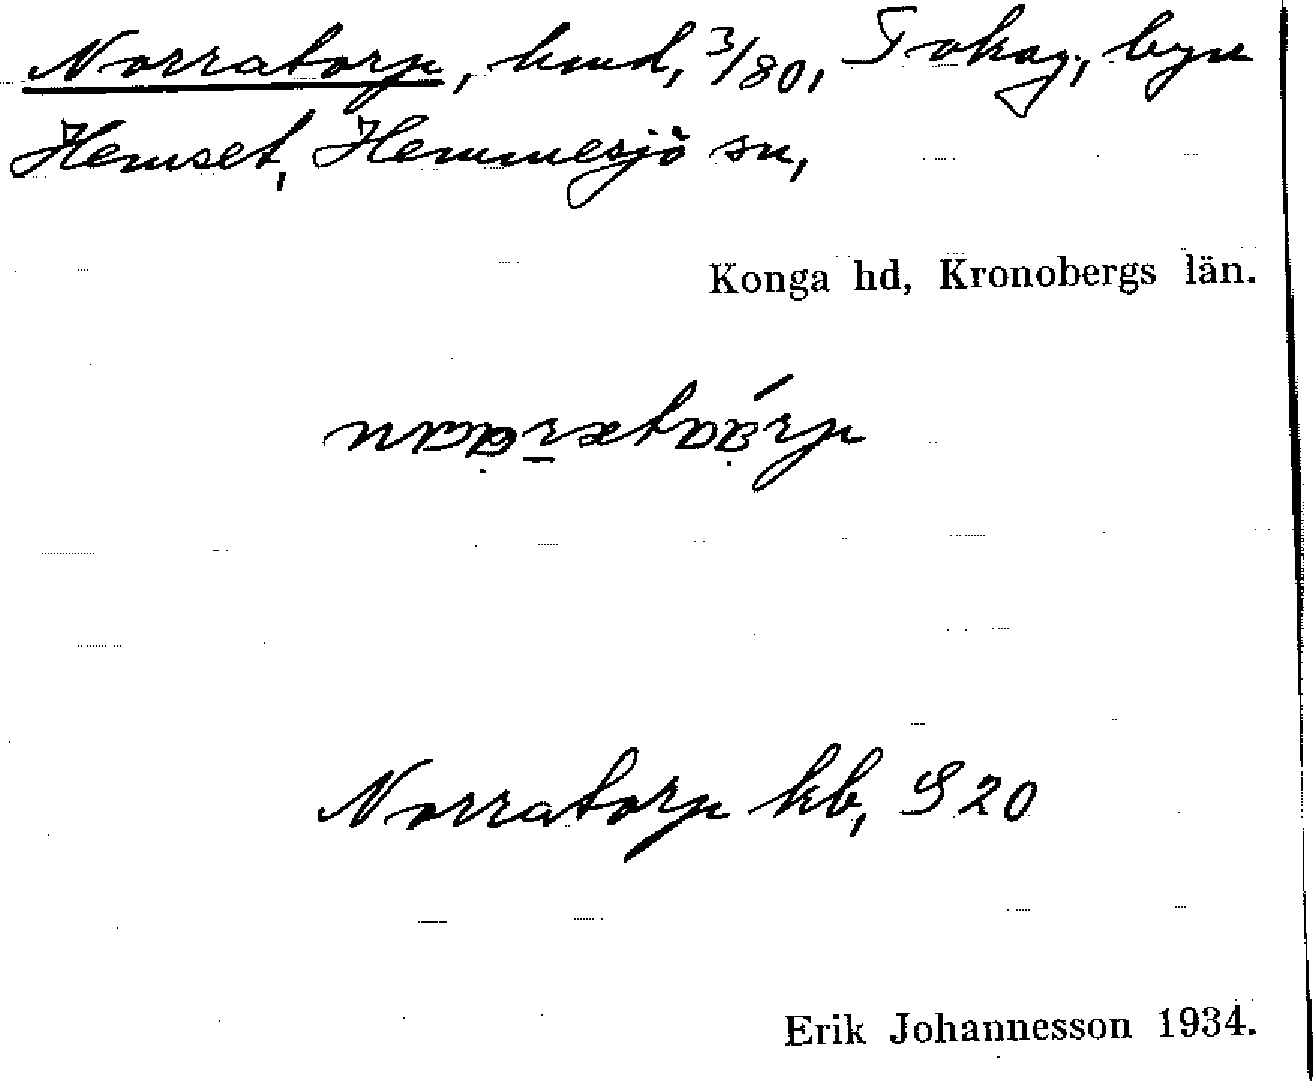 Norratorp, hmd, 3/80, Tokag, byn
Hemset, Hemmesjö sn,
Konga hd, Kronobergs län.
Norratorp kb, S 20
Erik Johannesson 1934.